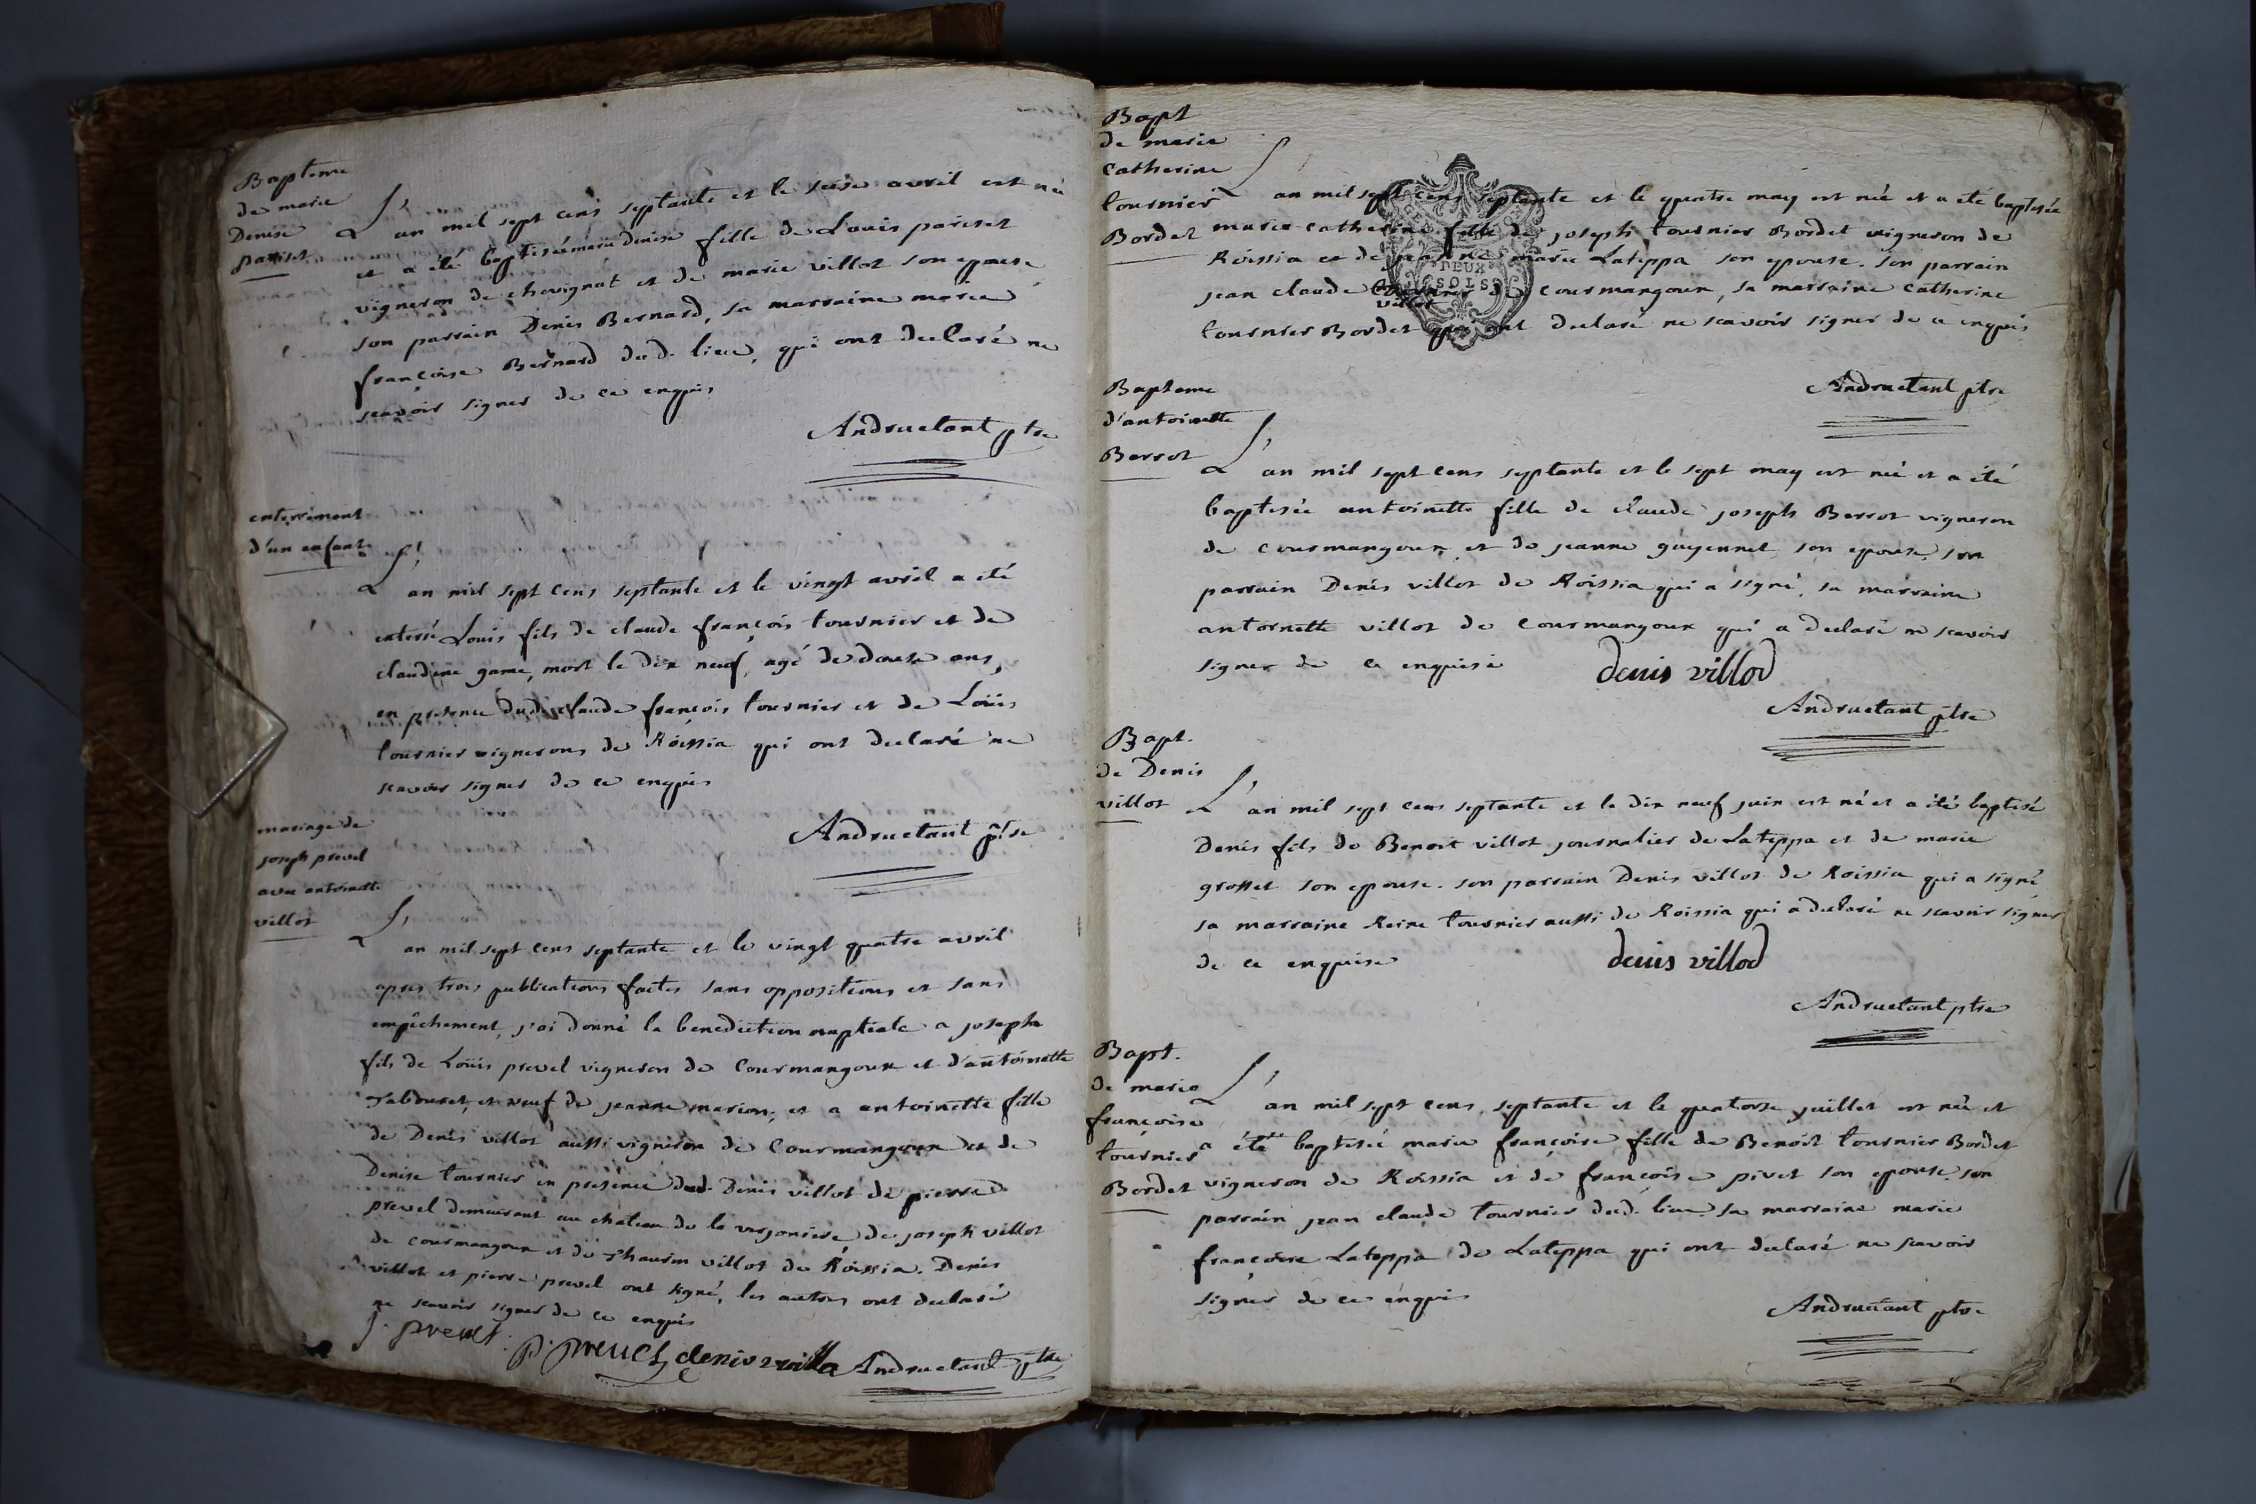 Bapteme
de marie
Denise
pariset
L'an mil sept cens septante et le seise avril est née
et a été baptisée marie denise fille de Louis pariset
vigneron de chevignat et de marie villot son epouse,
son parrain Denis Bernard, sa marraine marie
françoise Bernard dud. lieu, qui ont declaré ne
scavoir signer de ce enquis
Andruetant ptre
enterrement
d'un enfant
L'an mil sept cens septante et le vingt avril a été
enterré Louis fils de claude françois tournier et de
claudine game, mort le dix neuf, agé de douse ans,
en presence dud. claude françois tournier et de Loüis
tournier vignerons de Roissia qui ont declaré ne
scavoir signer de ce enquis
Andruetant ptre
mariage de
joseph prevel
avec antoinette
villot
L'an mil sept cens septante et le vingt quatre avril
apres trois publications faites sans oppositions et sans
empêchement, j'ai donné la benediction nuptiale a joseph
fils de Loüis prevel vigneron de Courmangoux et d'antoinette
Tabouret, et veuf de jeanne marion, et a antoinette fille
de Denis villot aussi vigneron de Courmangoux et de
Denise tournier en presence dud. Denis villot de pierre
prevel demeurant au chateau de la verjoniere de joseph villot
de courmangoux et de villot de Roissia. Denis
villot et pierre prevel ont signé, les autres ont declaré
ne scavoir signer de ce enquis
j. prevel P. preuel denis villa Andruetant ptre
Bapt
de marie
Catherine
tournier
Bordet
L'an mil sept cens septante et le quatre may est née et a été baptisée
marie catherine fille de joseph tournier Bordet vigneron de
Roissia et de jeanne marie Lateppa son epouse. son parrain
jean claude villot de courmangoux, sa marraine catherine
tournier Bordet qui ont declaré ne scavoir signer de ce enquis
DEUX
SOLS
Andruetant ptre
Bapteme
d'antoinette
Berrot
L'an mil sept cens septante et le sept may est née et a été
baptisée antoinette fille de claude joseph Berrot vigneron
de courmangoux et de jeanne guyennet son epouse, son
parrain Denis villot de Roissia qui a signé, sa marraine
antoinette villot de courmangoux qui a declaré ne scavoir
signer de ce enquise
denis villod
Andruetant ptre
Bapt.
de Denis
villot
L'an mil sept cens septante et le dix neuf juin est né et a été baptisé
Denis fils de Benoit villot journalier de Lateppa et de marie
grosset son epouse. son parrain Denis villot de Roissia qui a signé
sa marraine Reine tournier aussi de Roissia qui a declaré ne scavoir signer
de ce enquise
denis villod
Andruetant ptre
Bapt.
de marie
françoise
tournier
Bordet
L'an mil sept cens septante et le quatorse juillet est née et
a été baptisée marie françoise fille de Benoit tournier Bordet
vigneron de Roissia et de françoise pivet son epouse, son
parrain jean claude tournier dud. lieu sa marraine marie
françoise Lateppa de Lateppa qui ont declaré ne scavoir
signer de ce enquis
Andruetant ptre